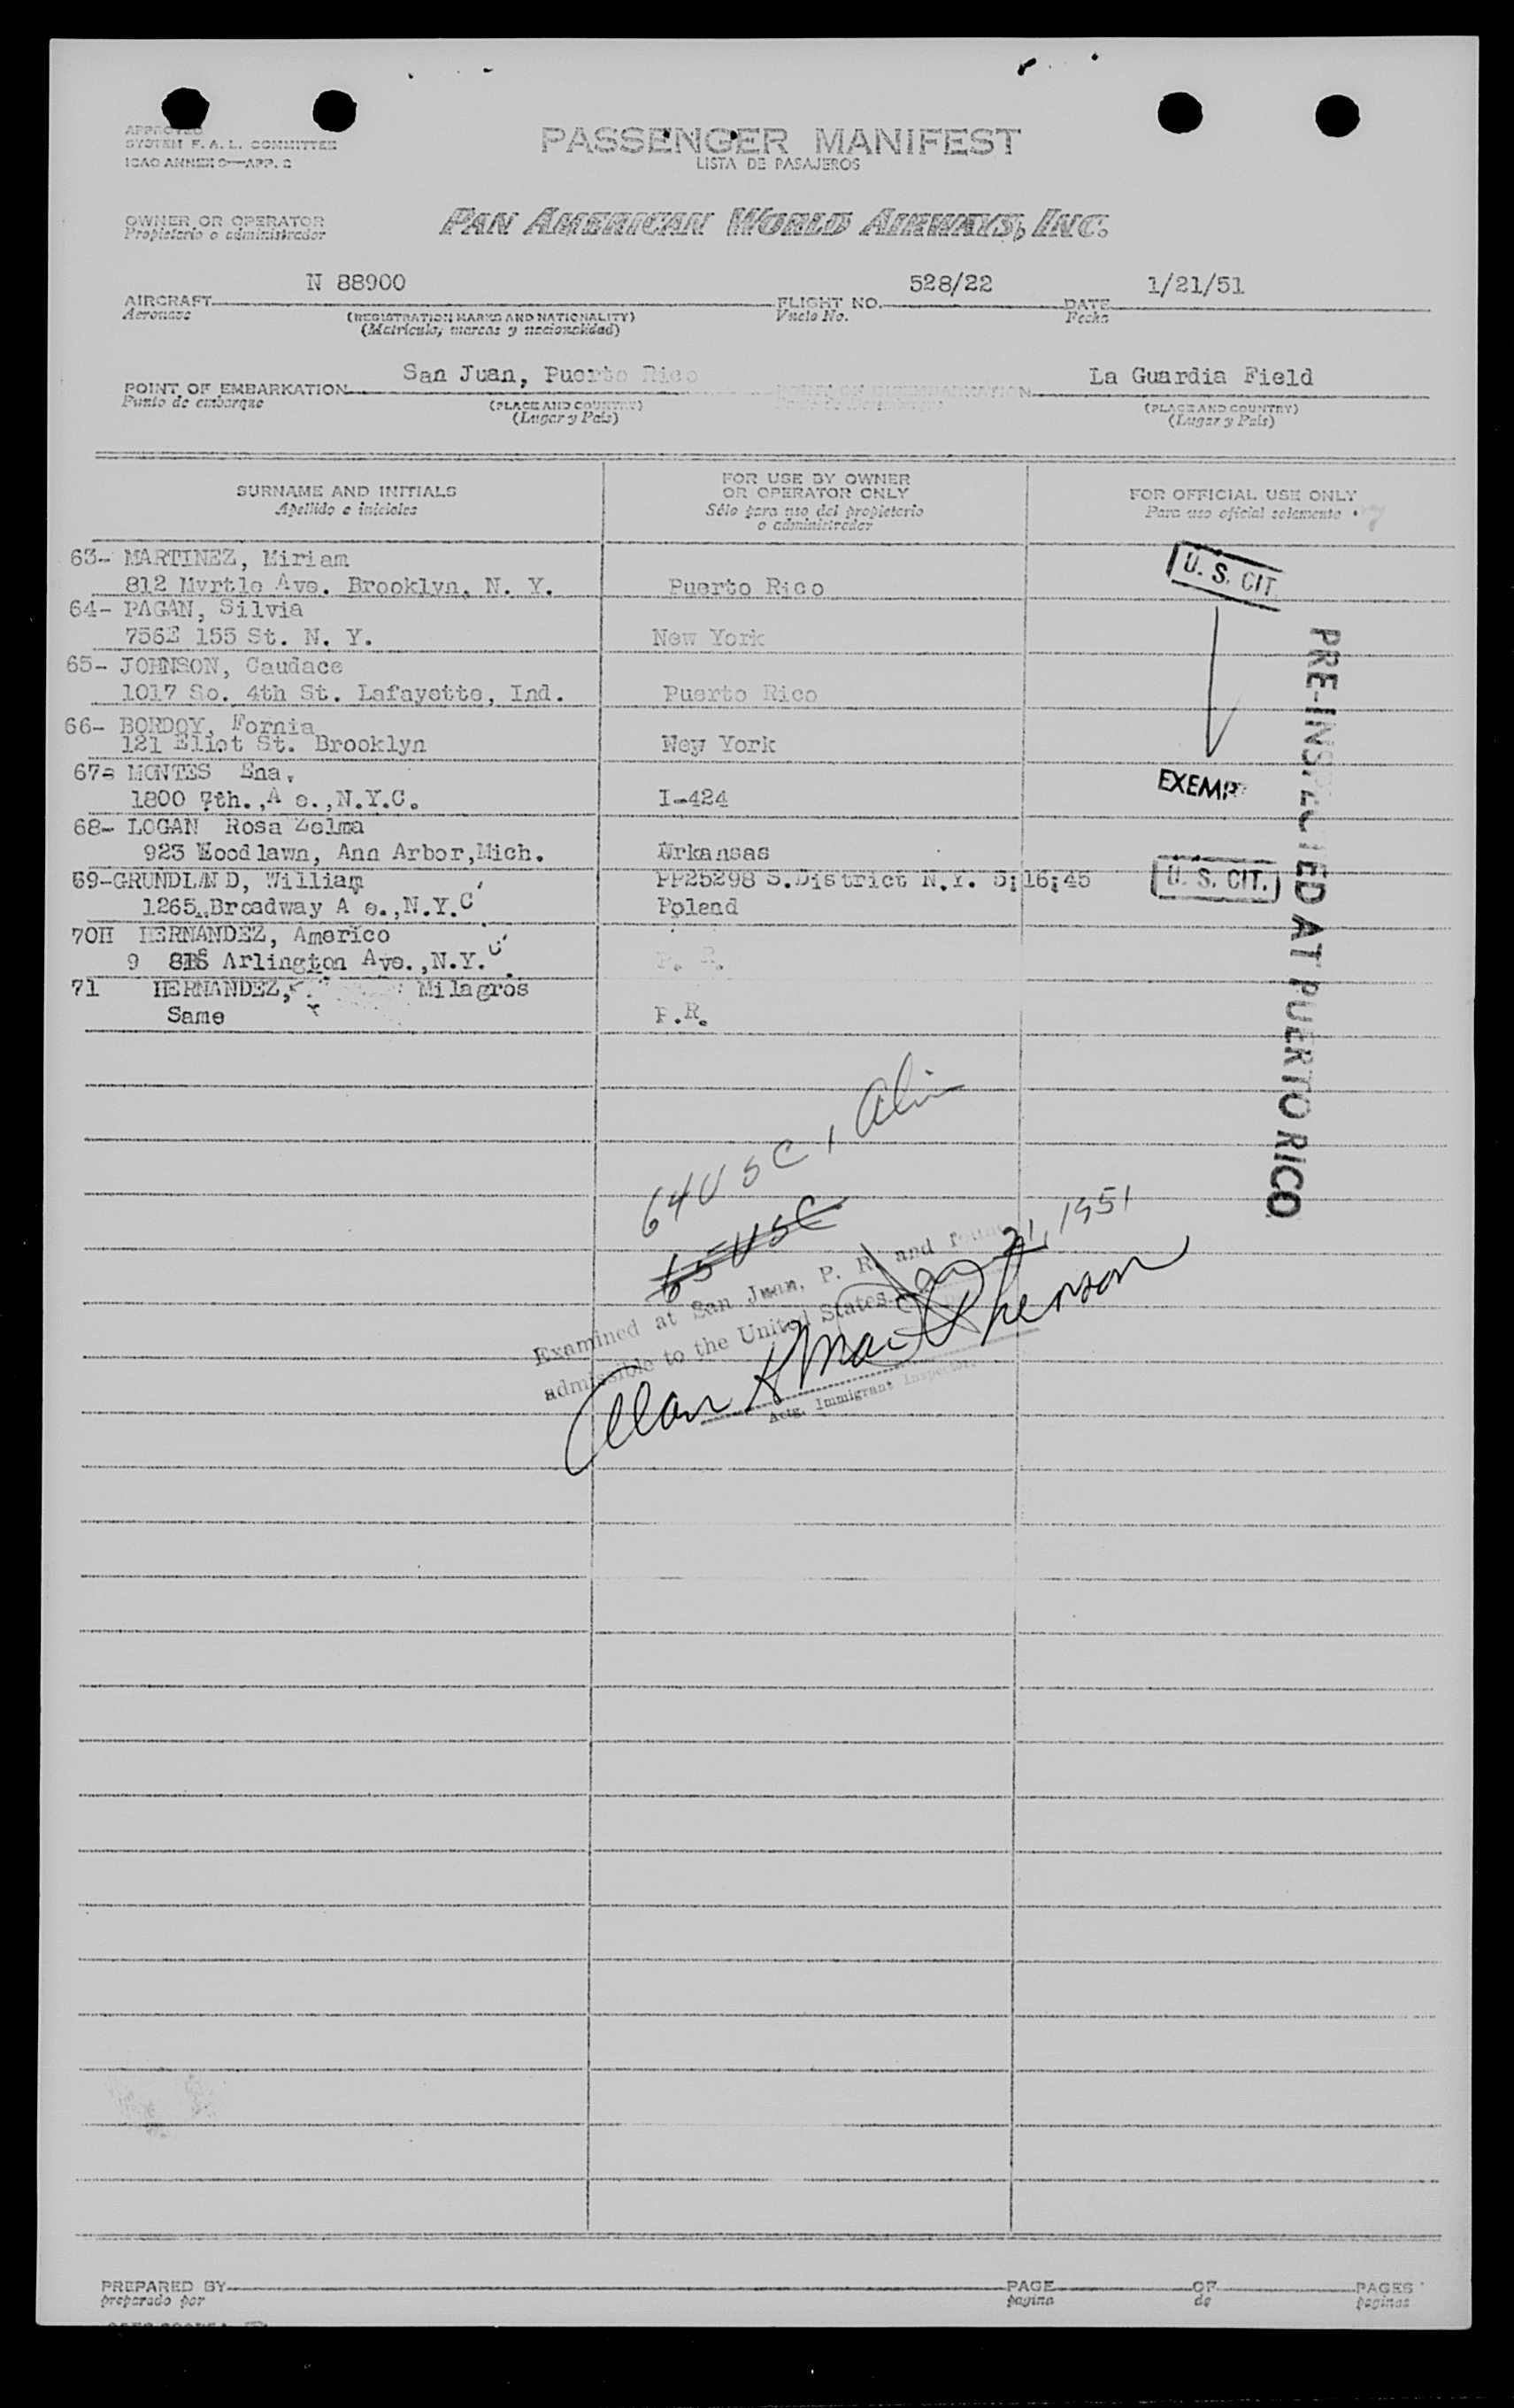 APPROVED
SYSTEM F. A. L. COMMITTEE
ICAO ANNEX 9—APP. 2
PASSENGER MANIFEST
LISTA DE PASAJEROS
OWNER OR OPERATOR
Propietario o administrador
PAN AMERICAN WORLD AIRWAYS, INC.
N 88900 528/22 1/21/51
AIRCRAFT FLIGHT NO. DATE
Aeronave (REGISTRATION MARKS AND NATIONALITY) Vuelo No. Fecha
(Matricula, marcas y nacionalidad)
San Juan, Puerto Rico La Guardia Field
POINT OF EMBARKATION
Punto de embarque (PLACE AND COUNTRY) (PLACE AND COUNTRY)
(Lugar y Pais) (Lugar y Pais)
SURNAME AND INITIALS
Apellido e iniciales
FOR USE BY OWNER
OR OPERATOR ONLY
Sólo para uso del propietario
o administrador
FOR OFFICIAL USE ONLY
Para uso oficial solamente
63- MARTINEZ, Miriam
812 Myrtle Ave. Brooklyn, N. Y. Puerto Rico
U. S. CIT.
64- PAGAN, Silvia
756E 155 St. N. Y. New York
65- JOHNSON, Caudace
1017 So. 4th St. Lafayette, Ind. Puerto Rico
66- BORDOY, Fornia
121 Eliot St. Brooklyn New York
67- MONTES Ena,
1800 7th.,A e.,N.Y.C. I-424
EXEMP
68- LOGAN Rosa Zelma
923 Woodlawn, Ann Arbor,Mich. Arkansas
69-GRUNDLAND, William PP25298 S.District N.Y. 5;16;45
U. S. CIT.
1265 Broadway A e.,N.Y.C Poland
70H HERNANDEZ, Americo
9 Arlington Ave.,N.Y.C. P. R.
71 HERNANDEZ, Milagros
Same P.R.
PRE-INSPECTED AT PUERTO RICO
64 USC, 1 Alien
65 USC
Examined at San Juan, P. R. and found
Jan 21, 1951
admissible to the United States
Alan K MacPherson
Actg. Immigrant Inspector.
PREPARED BY PAGE OF PAGES
preparado por pagina de paginas